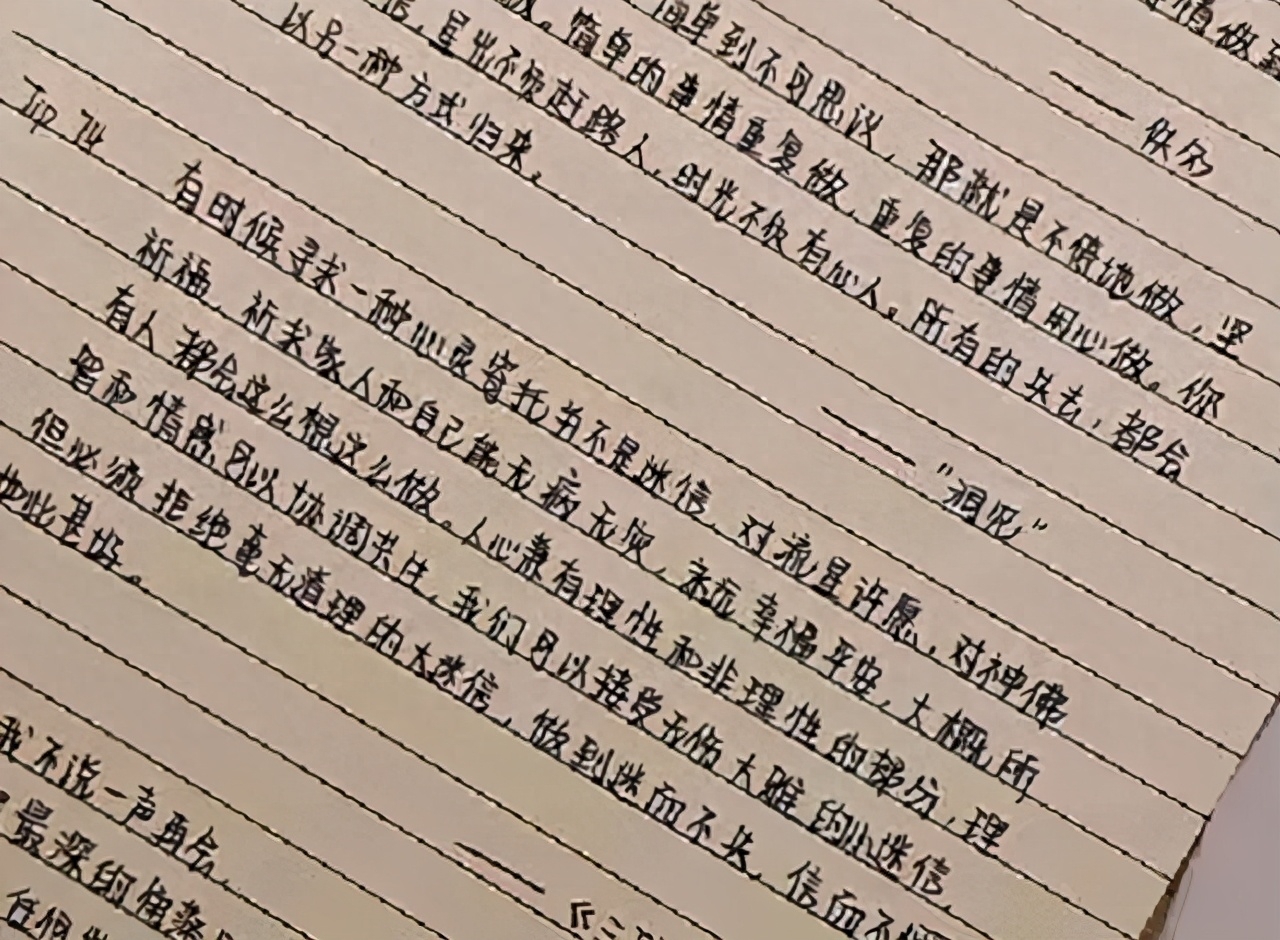 情做到
—— 佚名
简单到不可思议，那就是不停地做，坚
简单的事情重复做，重复的事情用心做。你
信，星光不负赶路人，时光不负有心人。所有的失去，都会
以另一种方式归来。
—— "祖兄"
Tip 74
有时候寻求一种心灵寄托并不是迷信，对流星许愿，对神佛
祈福，祈求家人和自己能无病无灾，永远幸福平安，大概所
有人都会这么想这么做。人心兼有理性和非理性的部分，理
智和情感可以协调共住，我们可以接受无伤大雅的小迷信，
但必须拒绝毫无道理的大迷信，做到迷而不失，信而不
如此甚好。
——《三
我不说一声再会，
最深的
任何